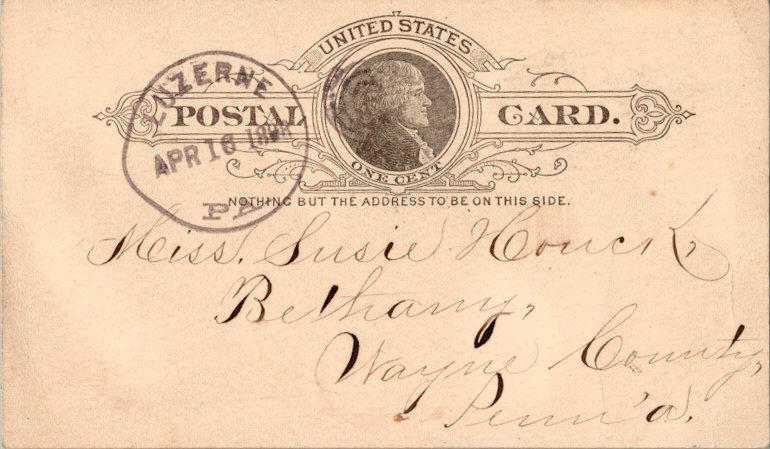 UNITED STATES
POSTAL CARD.
ONE CENT
NOTHING BUT THE ADDRESS TO BE ON THIS SIDE.
LUZERNE
APR 16
PA
Miss. Susie Houck,
Bethany,
Wayne County,
Penn'a.